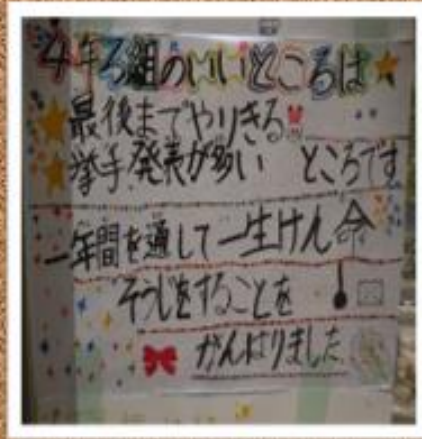 4年ろ組のいいところは★
★最後までやりきる!!
★挙手、発表が多い ところです
一年間を通して一生けん命
そうじをすることを
がんばりました